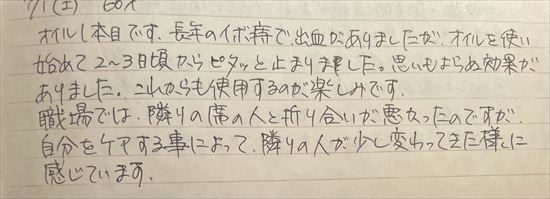 7/1(土) 60才
オイル1本目です。長年のイボ痔で、出血がありましたが、オイルを使い
始めて2～3日頃からピタッと止まりました。思いもよらぬ効果が
ありました。これからも使用するのが楽しみです。
職場では、隣りの席の人と折り合いが悪かったのですが、
自分をケアする事によって、隣りの人が少し変わってきた様に
感じています。